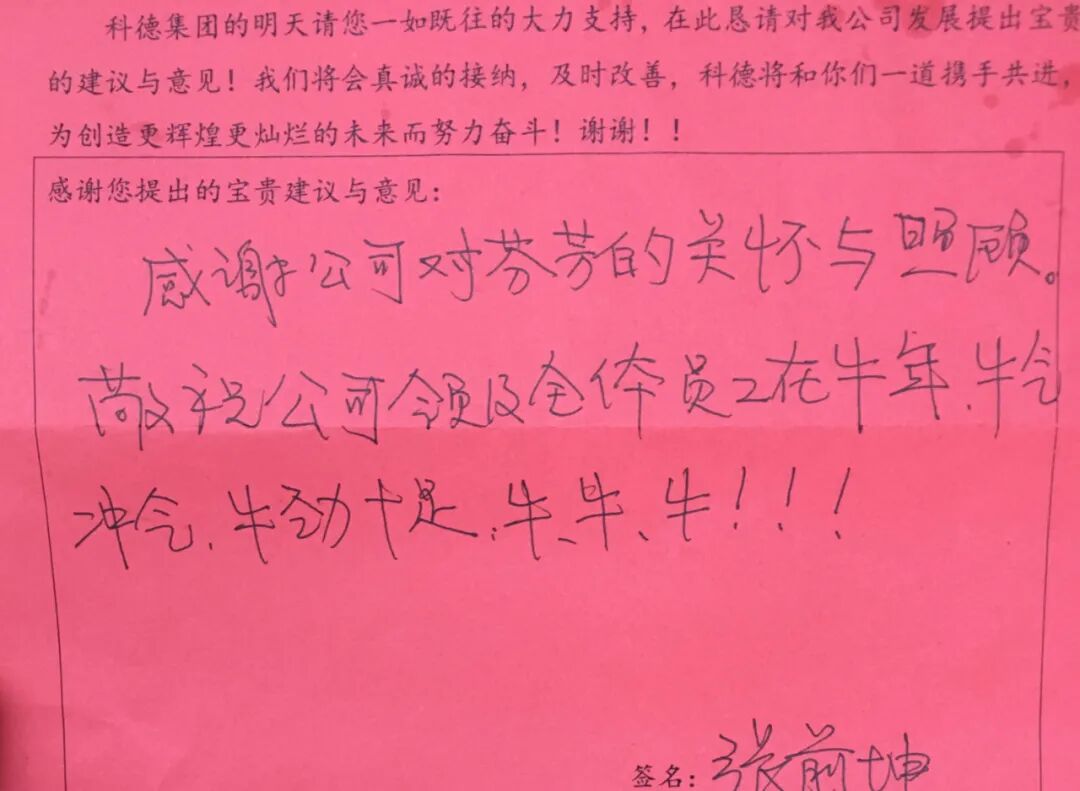 科德集团的明天请您一如既往的大力支持，在此恳请对我公司发展提出宝贵
的建议与意见！我们将会真诚的接纳，及时改善，科德将和你们一道携手共进，
为创造更辉煌更灿烂的未来而努力奋斗！谢谢！！
感谢您提出的宝贵建议与意见：
感谢公司对芬芳的关怀与照顾。
敬祝公司领及全体员工在牛年、牛气
冲气、牛劲十足，牛、牛、牛！！！
签名：张前坤